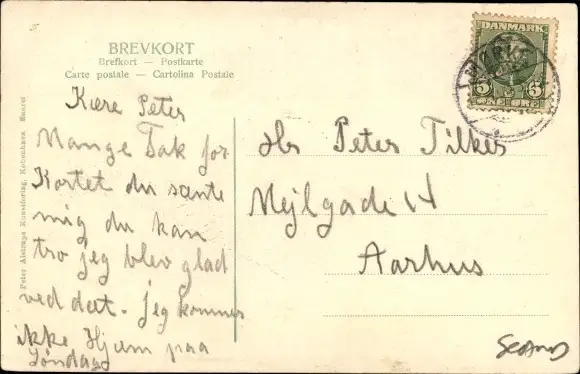 BREVKORT
Brefkort — Postkarte
Carte postale — Cartolina Postale
Kære Peter
Mange Tak for
Kortet du sænte
mig du kan
tro jeg blev glad
ved det. jeg kommer
ikke Hjem paa
Søndag
Peter Alstrups Kunstforlag, København. Eneret
DANMARK
5 5
ØRE ØRE
Hr Peter Tilker
Mejlgade 14
Aarhus